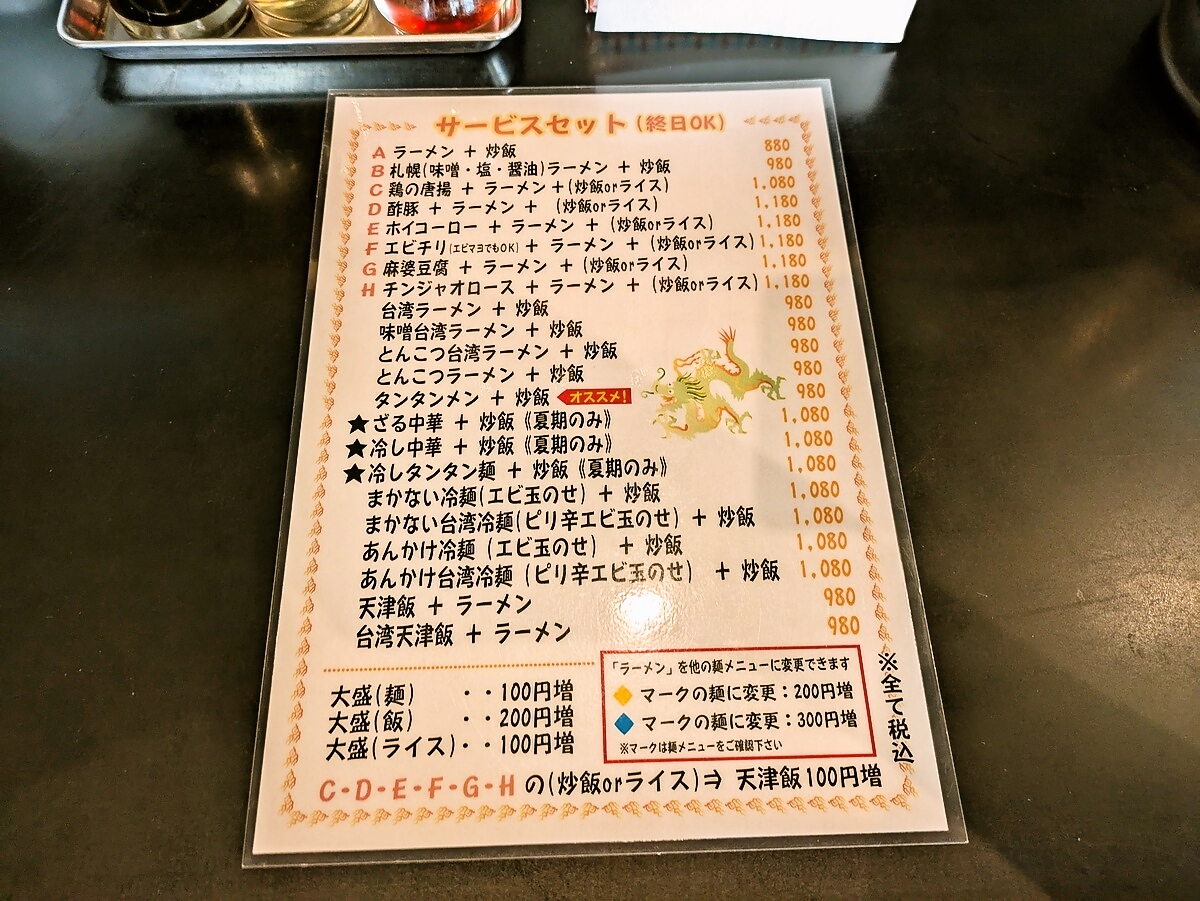 サービスセット(終日OK)
A ラーメン + 炒飯 880
B 札幌(味噌・塩・醤油)ラーメン + 炒飯 980
C 鶏の唐揚 + ラーメン+(炒飯orライス) 1,080
D 酢豚 + ラーメン + (炒飯orライス) 1,180
E ホイコーロー + ラーメン + (炒飯orライス) 1,180
F エビチリ(エビマヨでもOK) + ラーメン + (炒飯orライス) 1,180
G 麻婆豆腐 + ラーメン + (炒飯orライス) 1,180
H チンジャオロース + ラーメン + (炒飯orライス) 1,180
台湾ラーメン + 炒飯 980
味噌台湾ラーメン + 炒飯 980
とんこつ台湾ラーメン + 炒飯 980
とんこつラーメン + 炒飯 980
タンタンメン + 炒飯 オススメ! 980
★ざる中華 + 炒飯《夏期のみ》 1,080
★冷し中華 + 炒飯《夏期のみ》 1,080
★冷しタンタン麺 + 炒飯《夏期のみ》 1,080
まかない冷麺(エビ玉のせ) + 炒飯 1,080
まかない台湾冷麺(ピリ辛エビ玉のせ) + 炒飯 1,080
あんかけ冷麺 (エビ玉のせ) + 炒飯 1,080
あんかけ台湾冷麺 (ピリ辛エビ玉のせ) + 炒飯 1,080
天津飯 + ラーメン 980
台湾天津飯 + ラーメン 980
大盛(麺) ・・100円増
大盛(飯) ・・200円増
大盛(ライス)・・100円増
「ラーメン」を他の麺メニューに変更できます
◆マークの麺に変更:200円増
◆マークの麺に変更:300円増
※マークは麺メニューをご確認下さい
※全て税込
C・D・E・F・G・H の(炒飯orライス)⇒ 天津飯100円増